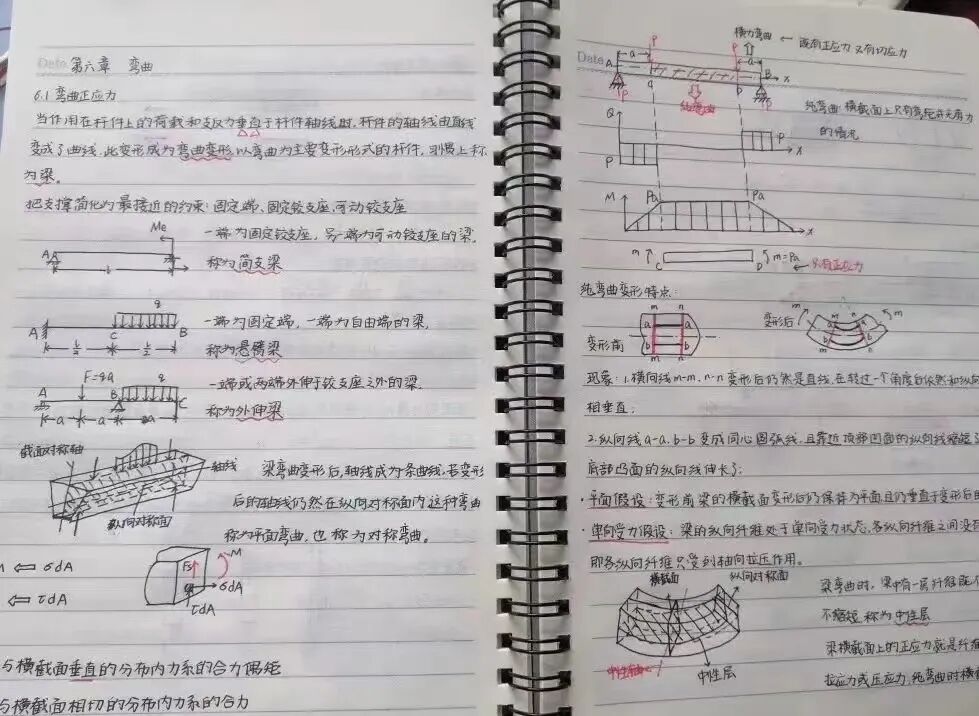 Date 第六章 弯曲
6.1 弯曲正应力
当作用在杆件上的荷载和支反力垂直于杆件轴线时,杆件的轴线由直线
变成了曲线,此变形成为弯曲变形,以弯曲为主要变形形式的杆件,习惯上称
为梁。
把支撑简化为最接近的约束:固定端、固定铰支座,可动铰支座
Me
A
l
一端为固定铰支座,另一端为可动铰支座的梁,
称为简支梁
q
A C B
l/2 l/2
一端为固定端,一端为自由端的梁,
称为悬臂梁
F=qa q
A B C
a a 2a
一端或两端外伸于铰支座之外的梁,
称为外伸梁
截面对称轴
轴线
纵向对称面
梁弯曲变形后,轴线成为条曲线,若变形
后的轴线仍然在纵向对称面内,这种弯曲
称为平面弯曲,也称为对称弯曲。
⇐ σdA
⇐ τdA
Fs M
σdA
τdA
与横截面垂直的分布内力系的合力偶矩
与横截面相切的分布内力系的合力
横力弯曲 ← 既有正应力又有切应力
Date
P P
a a
A B x
C D
P P
纯弯曲
纯弯曲:横截面上只有弯矩并无剪力
的情况
Q
P P
x
M Pa Pa
x
m C D m=Pa
只有正应力
纯弯曲变形特点:
变形前
m n
a a
b b
m n
变形后
m m
m n
a a
b b
m n
现象:1.横向线m-m,n-n变形后仍然是直线,在转过一个角度后依然和纵向
相垂直;
2.纵向线a-a,b-b变成同心圆弧线,且靠近顶部凹面的纵向线缩短了
底部凸面的纵向线伸长了;
·平面假设:变形前梁的横截面变形后仍保持为平面且仍垂直于变形后的
·单向受力假设:梁的纵向纤维处于单向受力状态,各纵向纤维之间没有
即各纵向纤维只受到轴向拉压作用。
横截面
纵向对称面
中性轴
中性层
梁弯曲时,梁中有一层纤维既不
不缩短,称为中性层
梁横截面上的正应力就是纤维
拉应力或压应力,纯弯曲时横截